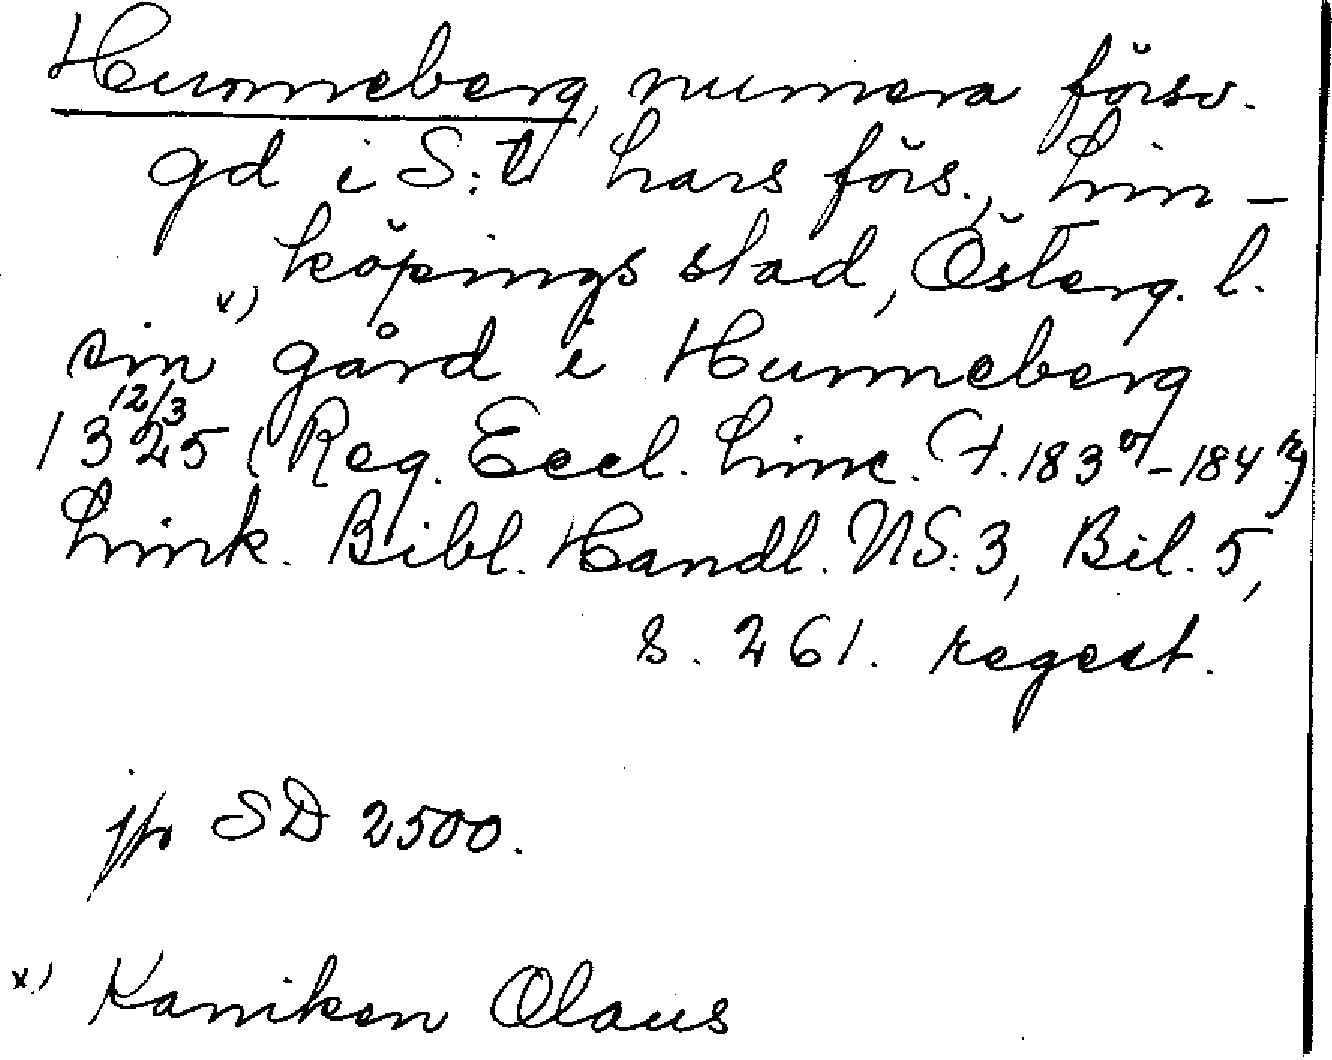 Hunneberg, numera försv.
gd i S:t Lars förs., Lin-
köpings stad, Österg. l.
x) sin gård i Hunneberg
12/3 1325 (Reg. Eccl. Linc. (f. 183v-184r)
Link. Bibl. Handl. NS:3, Bil. 5,
s. 261. regest.
jfr SD 2500.
x) Kaniken Olaus